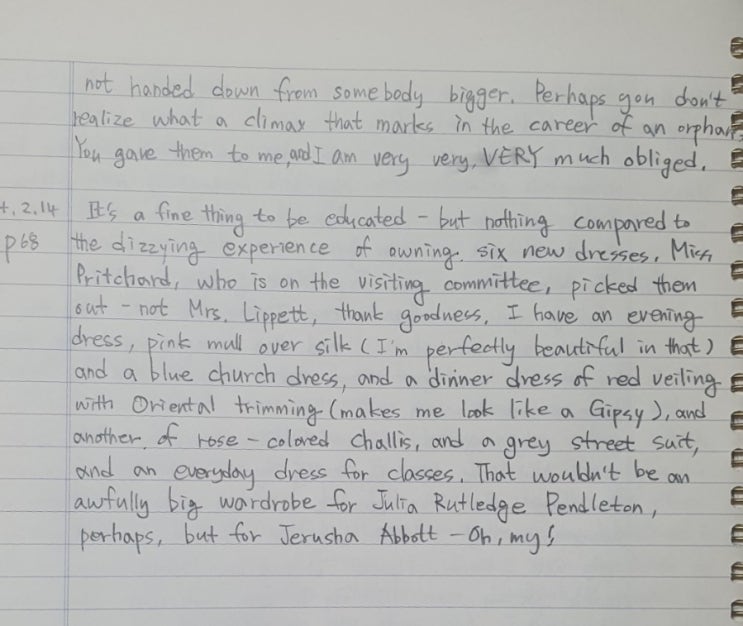 not handed down from somebody bigger. Perhaps you don't
realize what a climax that marks in the career of an orphan.
You gave them to me, and I am very very, VERY much obliged.
t. 2.14
p68
It's a fine thing to be educated - but nothing compared to
the dizzying experience of owning six new dresses. Miss
Pritchard, who is on the visiting committee, picked them
out - not Mrs. Lippett, thank goodness. I have an evening
dress, pink mull over silk (I'm perfectly beautiful in that)
and a blue church dress, and a dinner dress of red veiling
with Oriental trimming (makes me look like a Gipsy), and
another of rose-colored challis, and a grey street suit,
and an everyday dress for classes. That wouldn't be an
awfully big wardrobe for Julia Rutledge Pendleton,
perhaps, but for Jerusha Abbott - Oh, my!